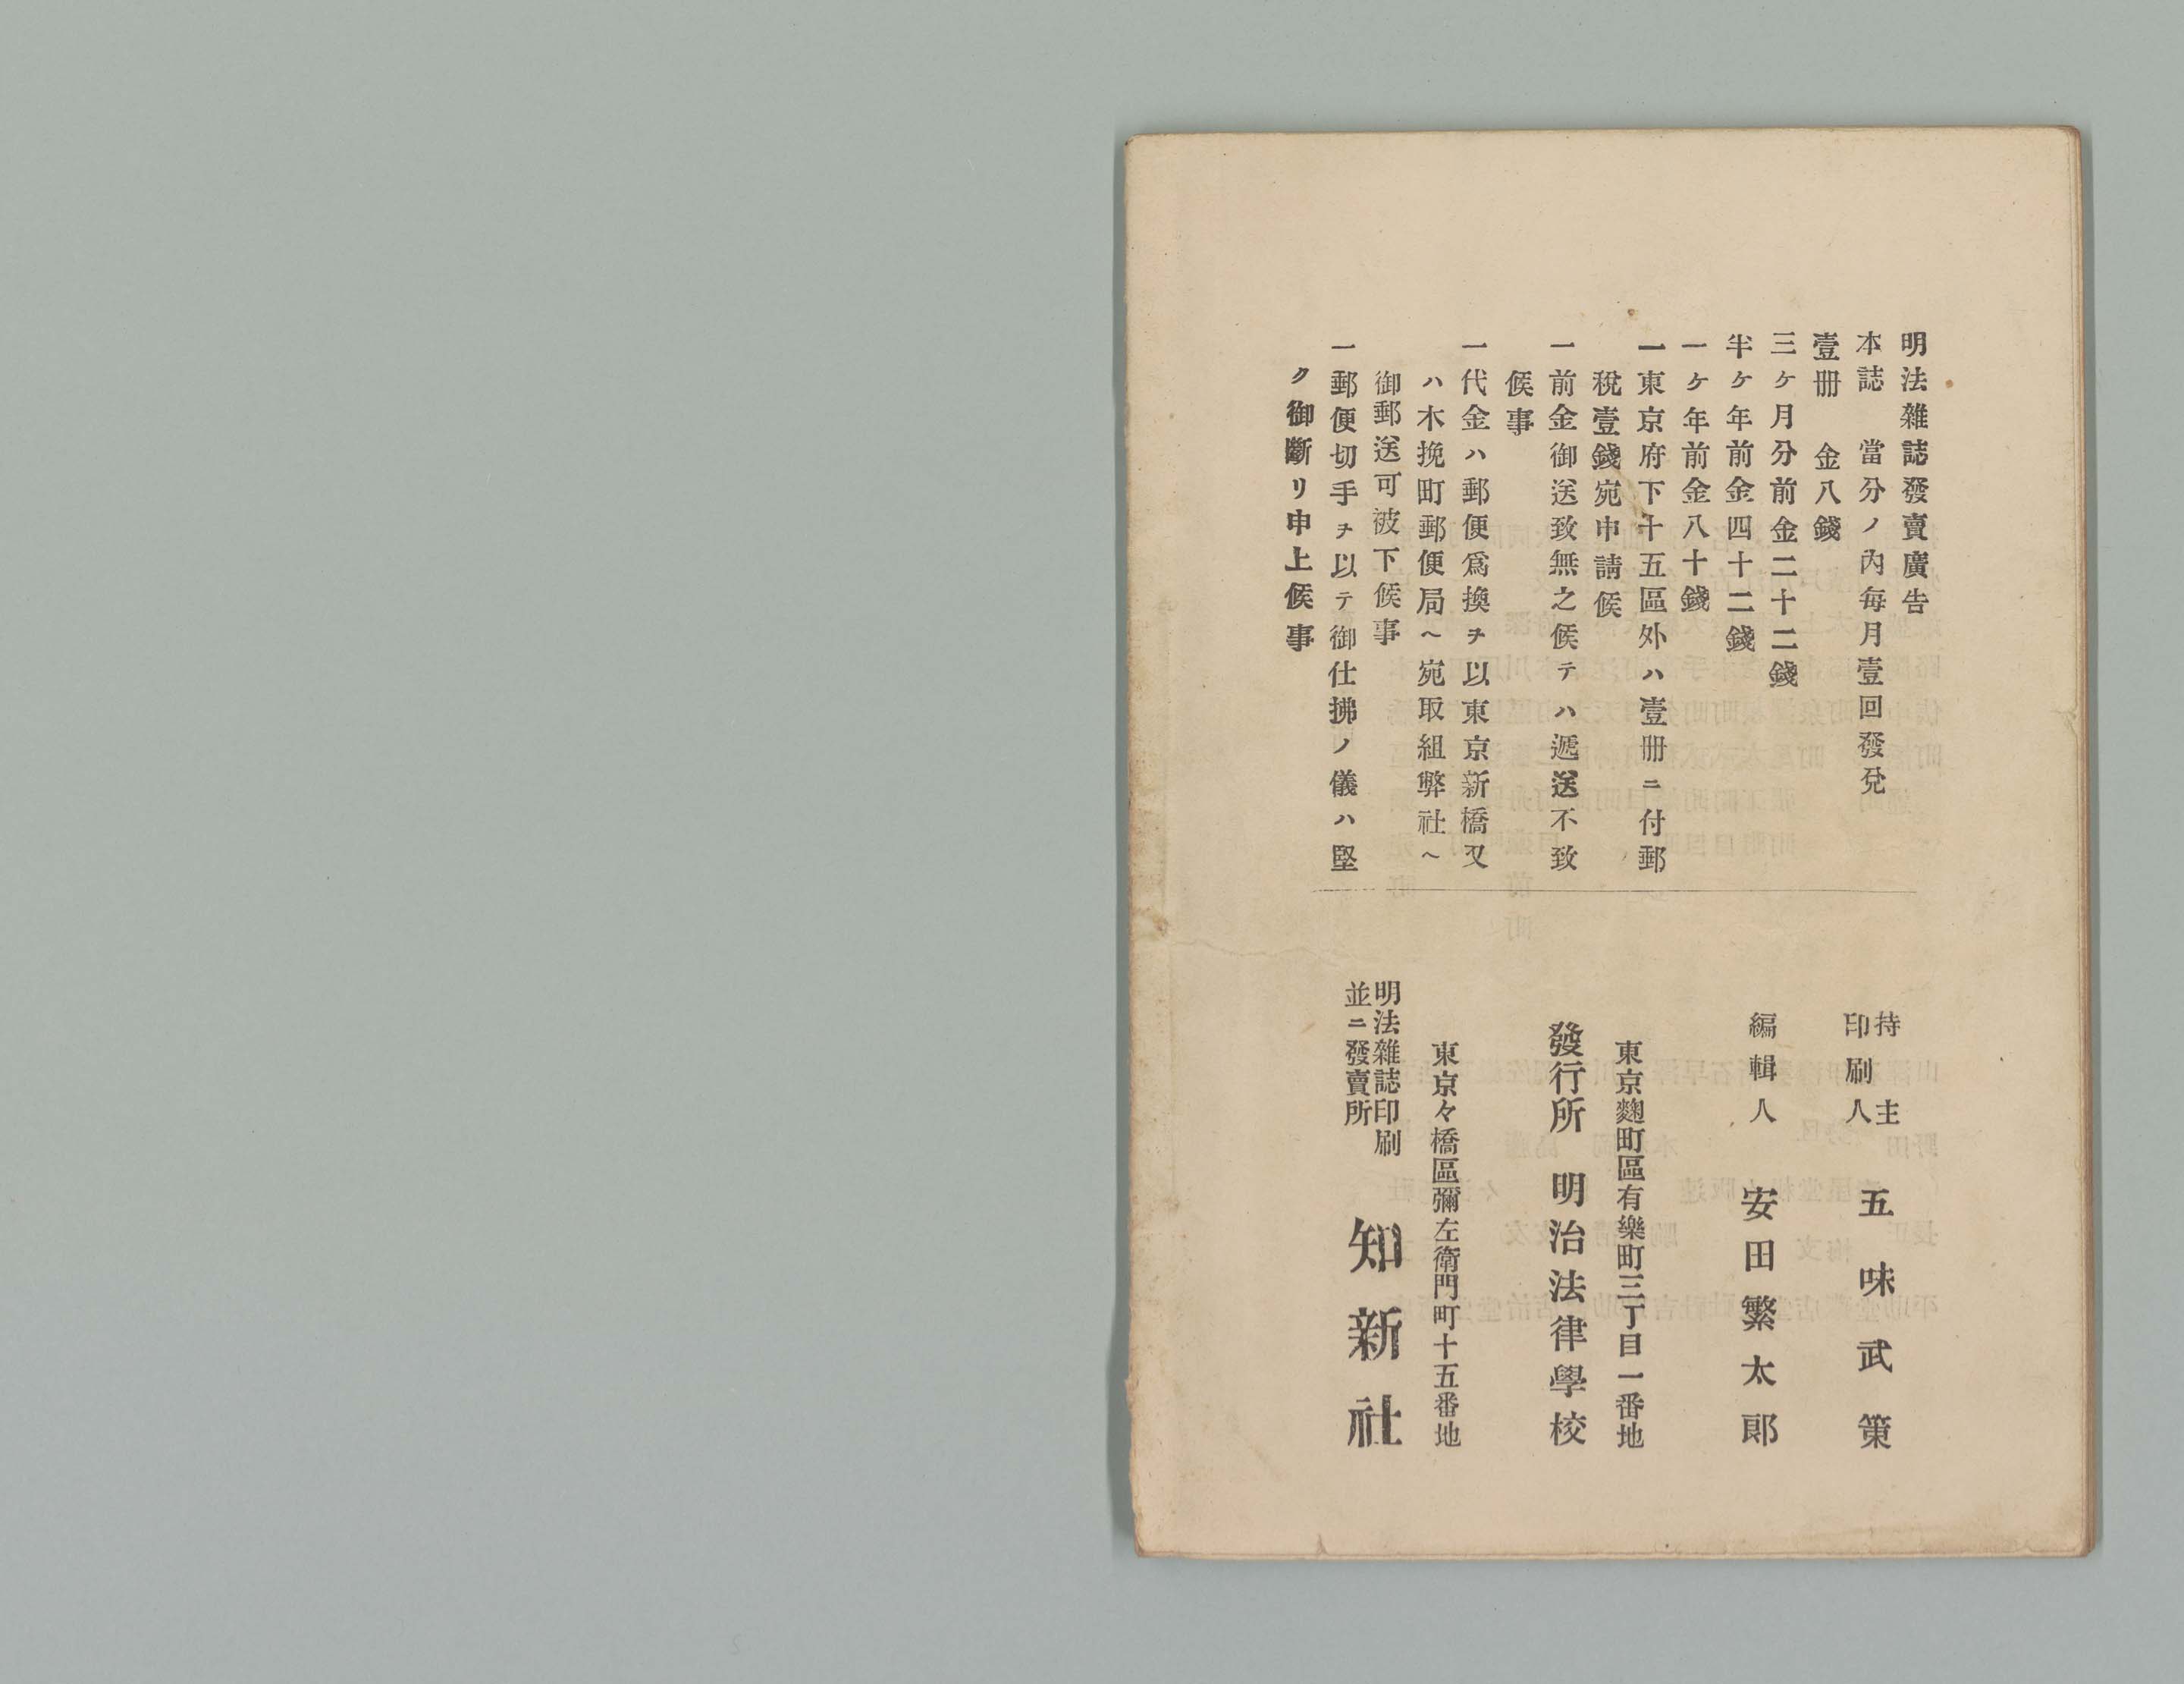 明法雜誌發賣廣告
本誌　當分ノ內每月壹回發兌
壹冊　金八錢
三ケ月分前金二十二錢
半ケ年前金四十二錢
一ケ年前金八十錢
一東京府下十五區外ハ壹冊ニ付郵
税壹錢宛申請候
一前金御送致無之候テハ遞送不致
候事
一代金ハ郵便爲換ヲ以東京新橋又
ハ木挽町郵便局ヘ宛取組弊社ヘ
御郵送可被下候事
一郵便切手ヲ以テ御仕拂ノ儀ハ堅
ク御斷リ申上候事
持主
印刷人　五味武策
編輯人　安田繁太郎
東京麹町區有樂町三丁目一番地
發行所　明治法律學校
東京々橋區彌左衛門町十五番地
明法雜誌印刷
並ニ發賣所　知新社